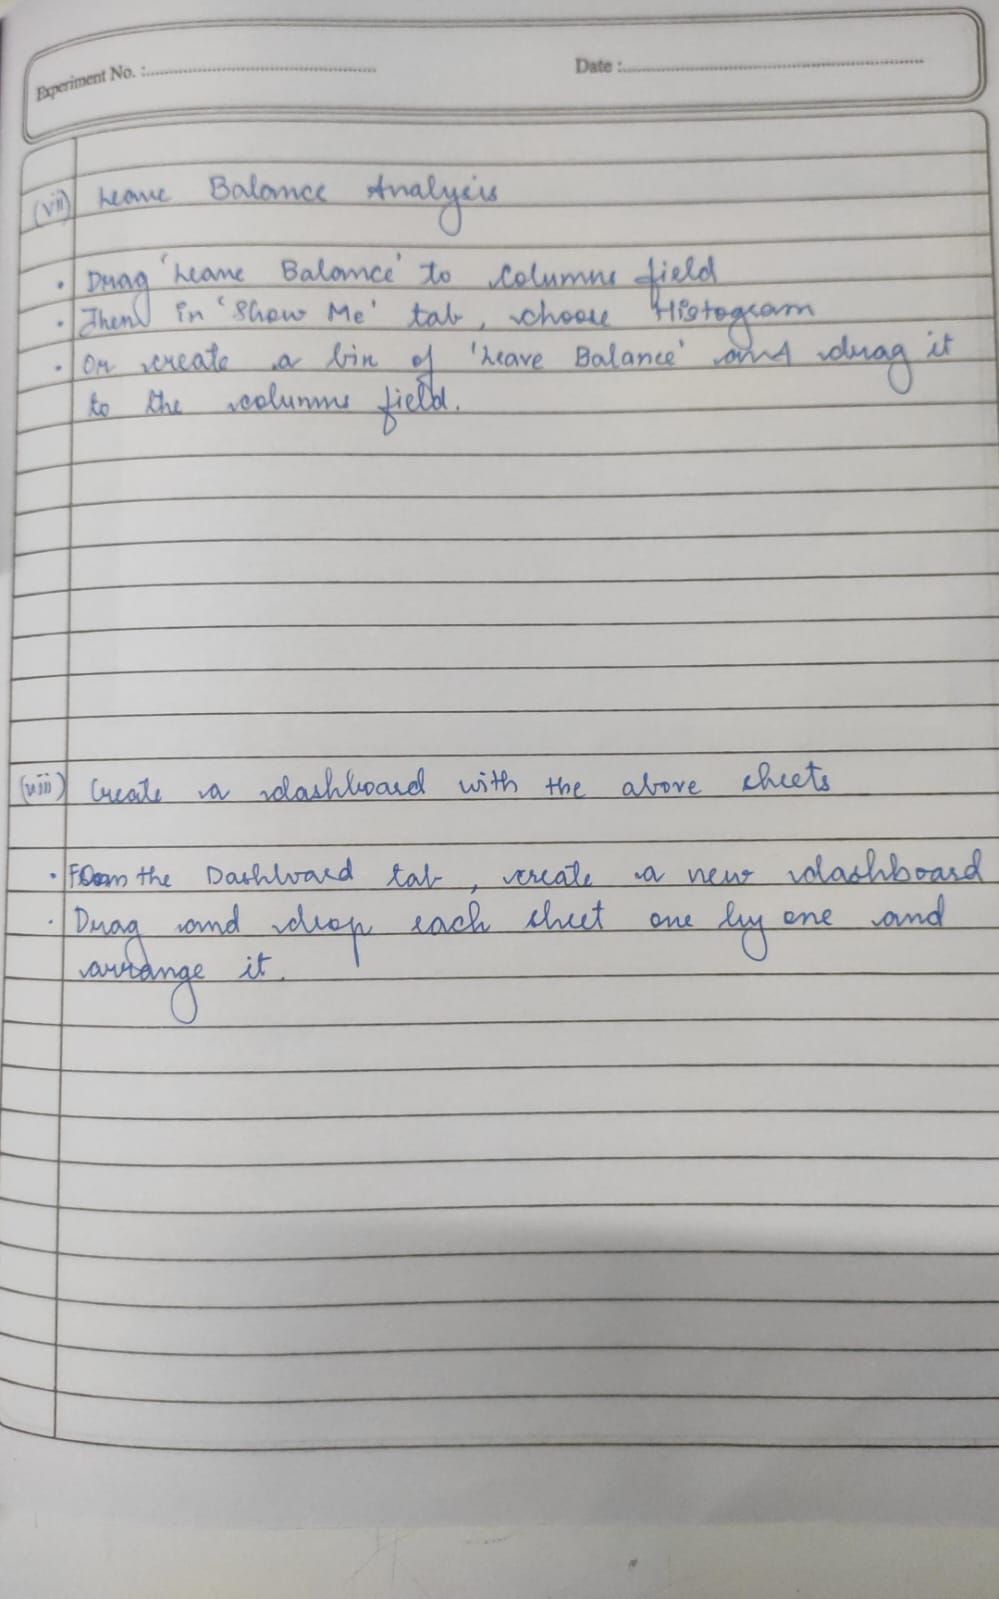 Experiment No. :
Date :
(vii) Leave Balance Analysis
• Drag 'Leave Balance' to columns field
• Then in 'Show Me' tab, choose Histogram
• Or create a bin of 'Leave Balance' and drag it
to the columns field.
(viii) Create a dashboard with the above sheets
• From the Dashboard tab, create a new dashboard
• Drag and drop each sheet one by one and
arrange it.